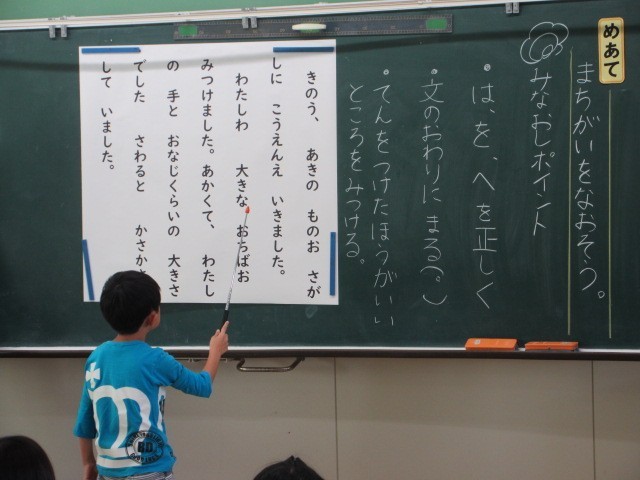 めあて
まちがいをなおそう。
みなおしポイント
・は、を、へを正しく
・文のおわりに まる(。)
・てんをつけたほうがいい
ところをみつける。
きのう、 あきの ものお さが
しに こうえんえ いきました。
わたしわ 大きな おちばお
みつけました。あかくて、 わたし
の 手と おなじくらいの 大きさ
でした さわると かさかさ
して いました。